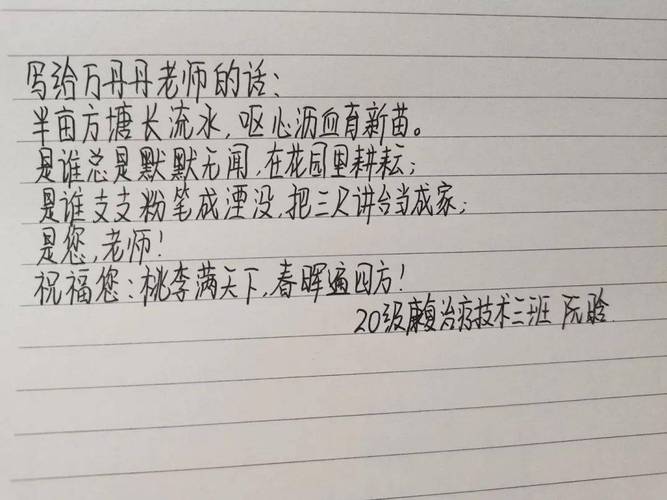 写给万丹丹老师的话:
半亩方塘长流水,呕心沥血育新苗。
是谁总是默默无闻,在花园里耕耘;
是谁支支粉笔成湮没,把三尺讲台当成家;
是您,老师!
祝福您:桃李满天下,春晖遍四方!
20级康复治疗技术三班 阮晗